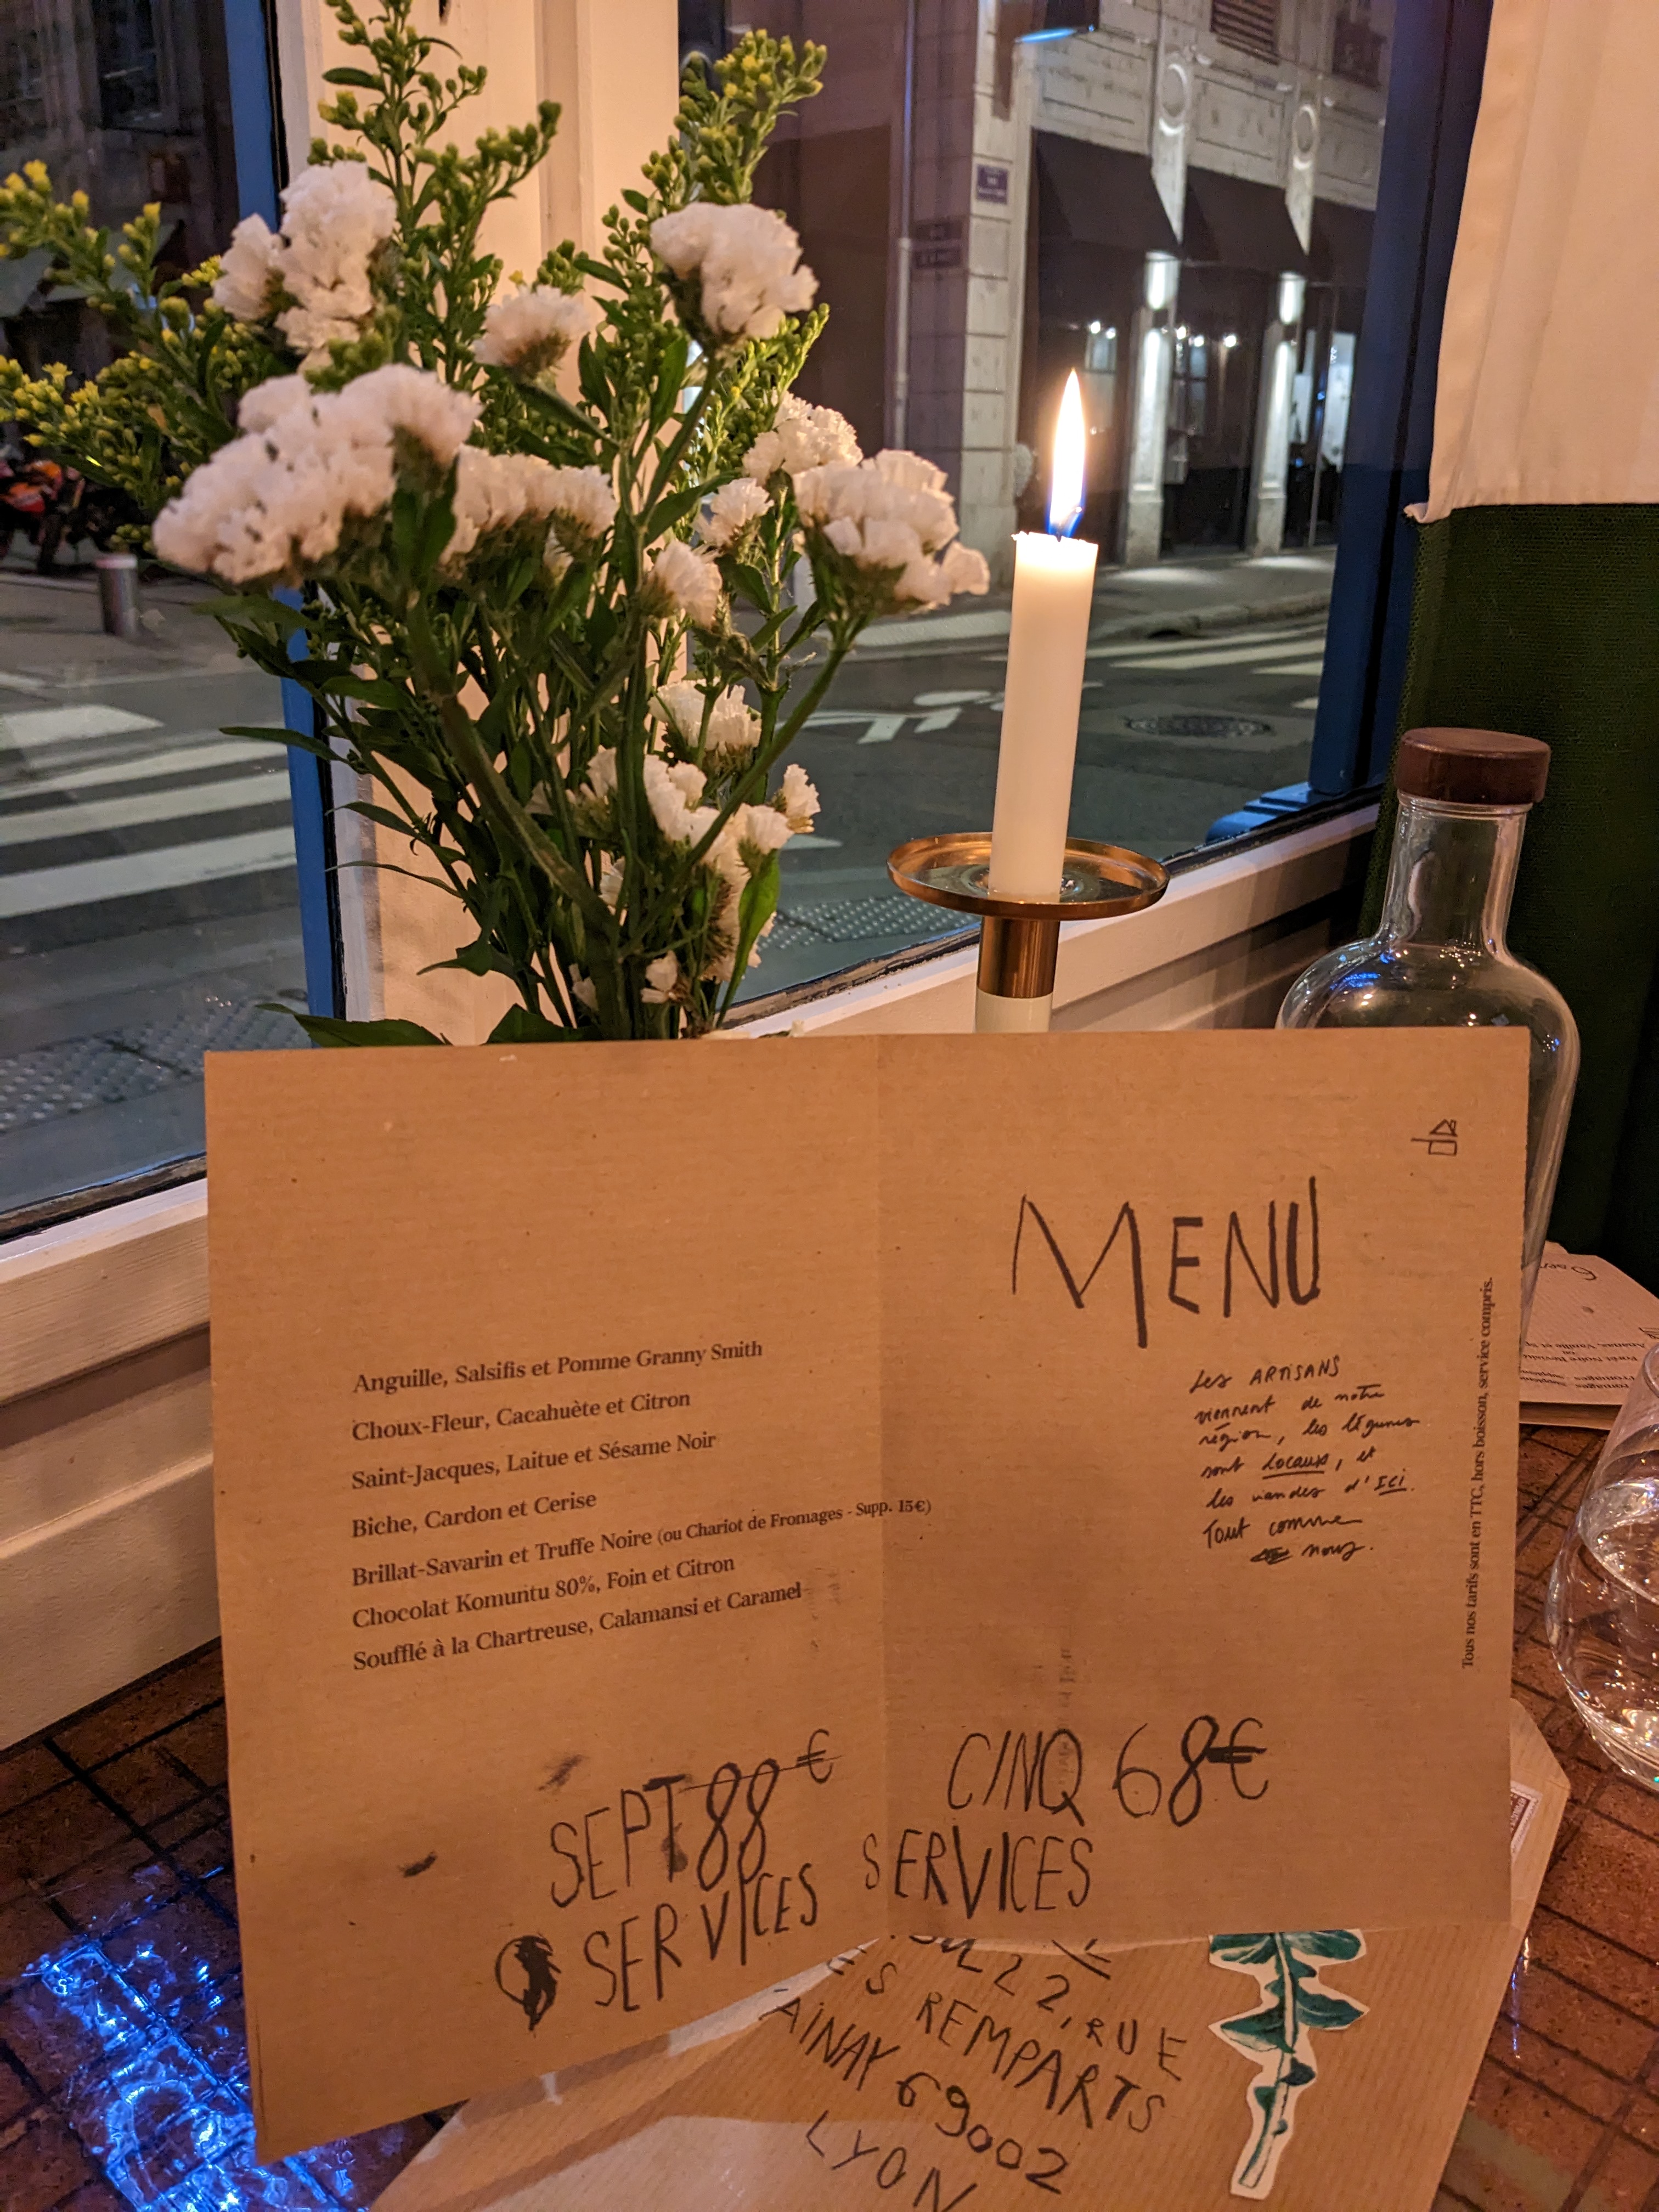 MENU
Anguille, Salsifis et Pomme Granny Smith
Choux-Fleur, Cacahuète et Citron
Saint-Jacques, Laitue et Sésame Noir
Biche, Cardon et Cerise
Brillat-Savarin et Truffe Noire (ou Chariot de Fromages - Supp. 15€)
Chocolat Komuntu 80%, Foin et Citron
Soufflé à la Chartreuse, Calamansi et Caramel
Les ARTISANS
viennent de notre
région, les légumes
sont locaux, et
les viandes d'ICI.
Tout comme
nous.
Tous nos tarifs sont en TTC, hors boisson, service compris.
SEPT 88€
SERVICES
CINQ 68€
SERVICES
22, RUE
ES REMPARTS
AINAY 69002
LYON